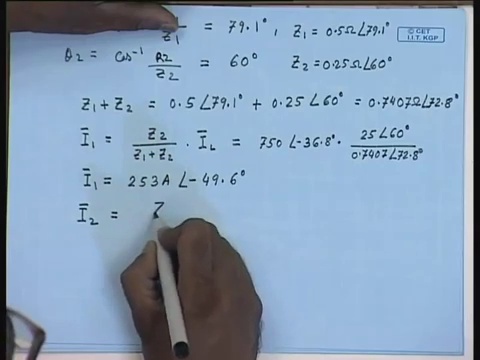 Z₁ = 79.1°, Z₁ = 0.5Ω∠79.1°
© CET
I.I.T. KGP
θ₂ = Cos⁻¹ R₂/Z₂ = 60° Z₂ = 0.25Ω∠60°
Z₁+Z₂ = 0.5∠79.1° + 0.25∠60° = 0.7407Ω∠72.8°
I̅₁ = Z₂/(Z₁+Z₂) · I̅_L = 750∠-36.8° · 25∠60°/0.7407∠72.8°
I̅₁ = 253A∠-49.6°
I̅₂ = Z